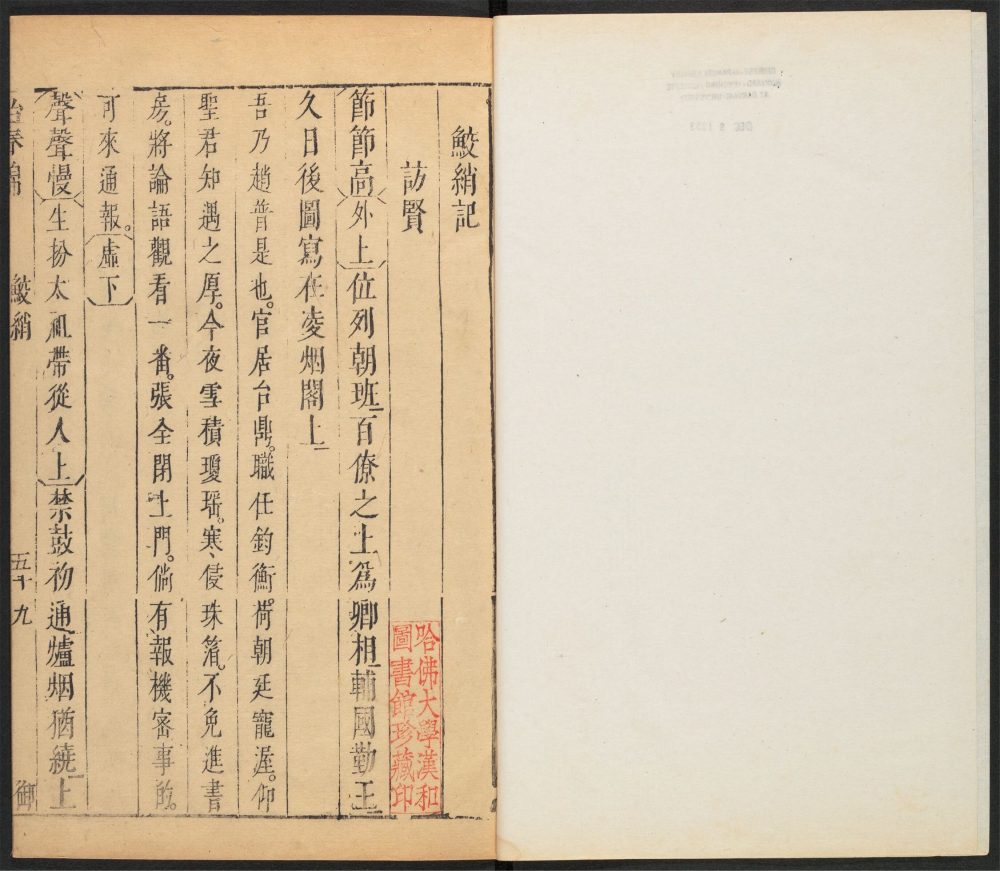 鮫綃記
訪賢
節節高外上位列朝班百僚之上爲卿相輔國勤王
久日後圖寫在凌烟閣上
吾乃趙普是也。官居台鼎。職任鈞衡。荷朝廷寵渥。仰
聖君知遇之厚。今夜雪積瓊瑶。寒侵珠箔。不免進書
房。將論語觀看一番。張全閉上門。倘有報機密事的。
可來通報。虛下
聲聲慢生扮太祖帶從人上禁鼓初通爐烟猶繞上
怡春錦 鮫綃 五十九 御
哈佛大學漢和
圖書館珍藏印